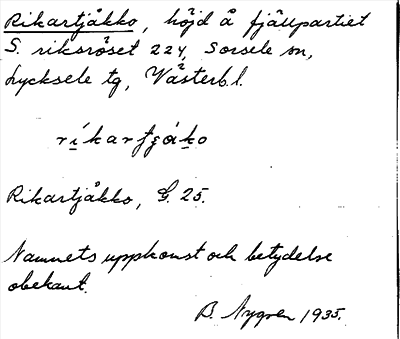 Rikartjåkko, höjd å fjällpartiet
S. riksröset 224, Sorsele sn,
Lycksele tg, Västerb. l.
Rikartjåkko, G. 25.
Namnets uppkomst och betydelse
obekant.
B. Nygren 1935.